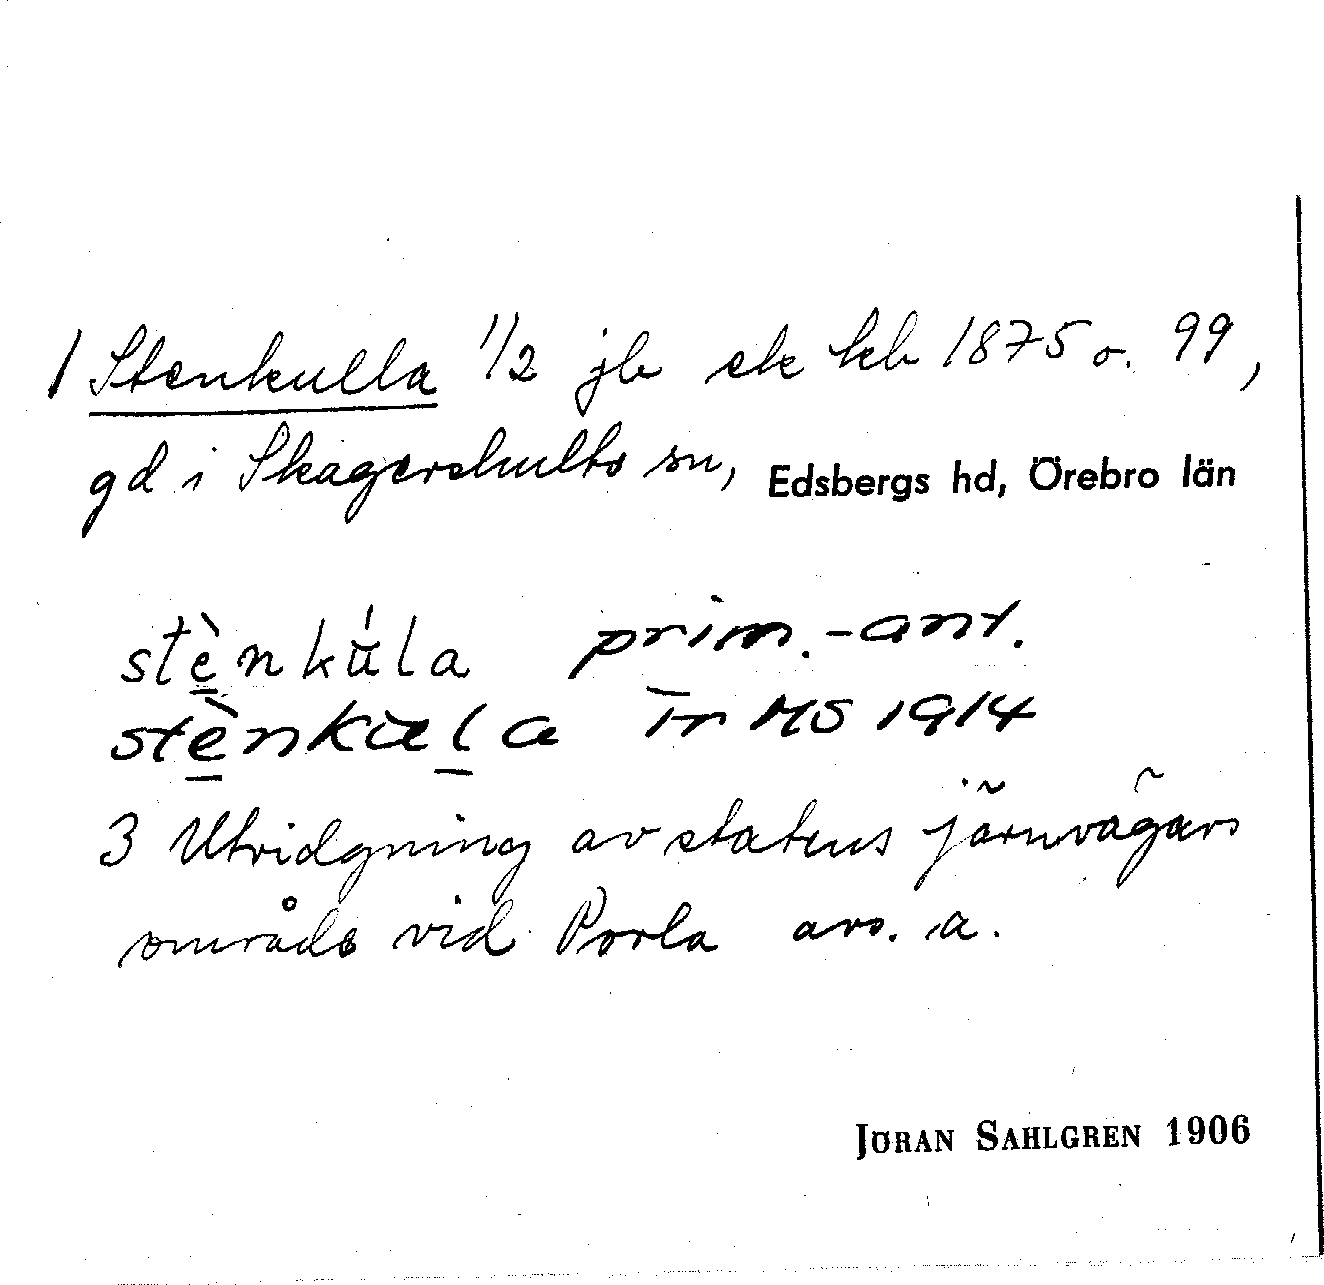 1 Stenkulla 1/2 jb ek kb 1875 o. 99,
gd i Skagershults sn, Edsbergs hd, Örebro län
stè̱nkúla prim.-ant.
stè̱nkula̱ Tr MS 1914
3 Utvidgning av statens järnvägars
område vid Porla avs. a.
JÖRAN SAHLGREN 1906